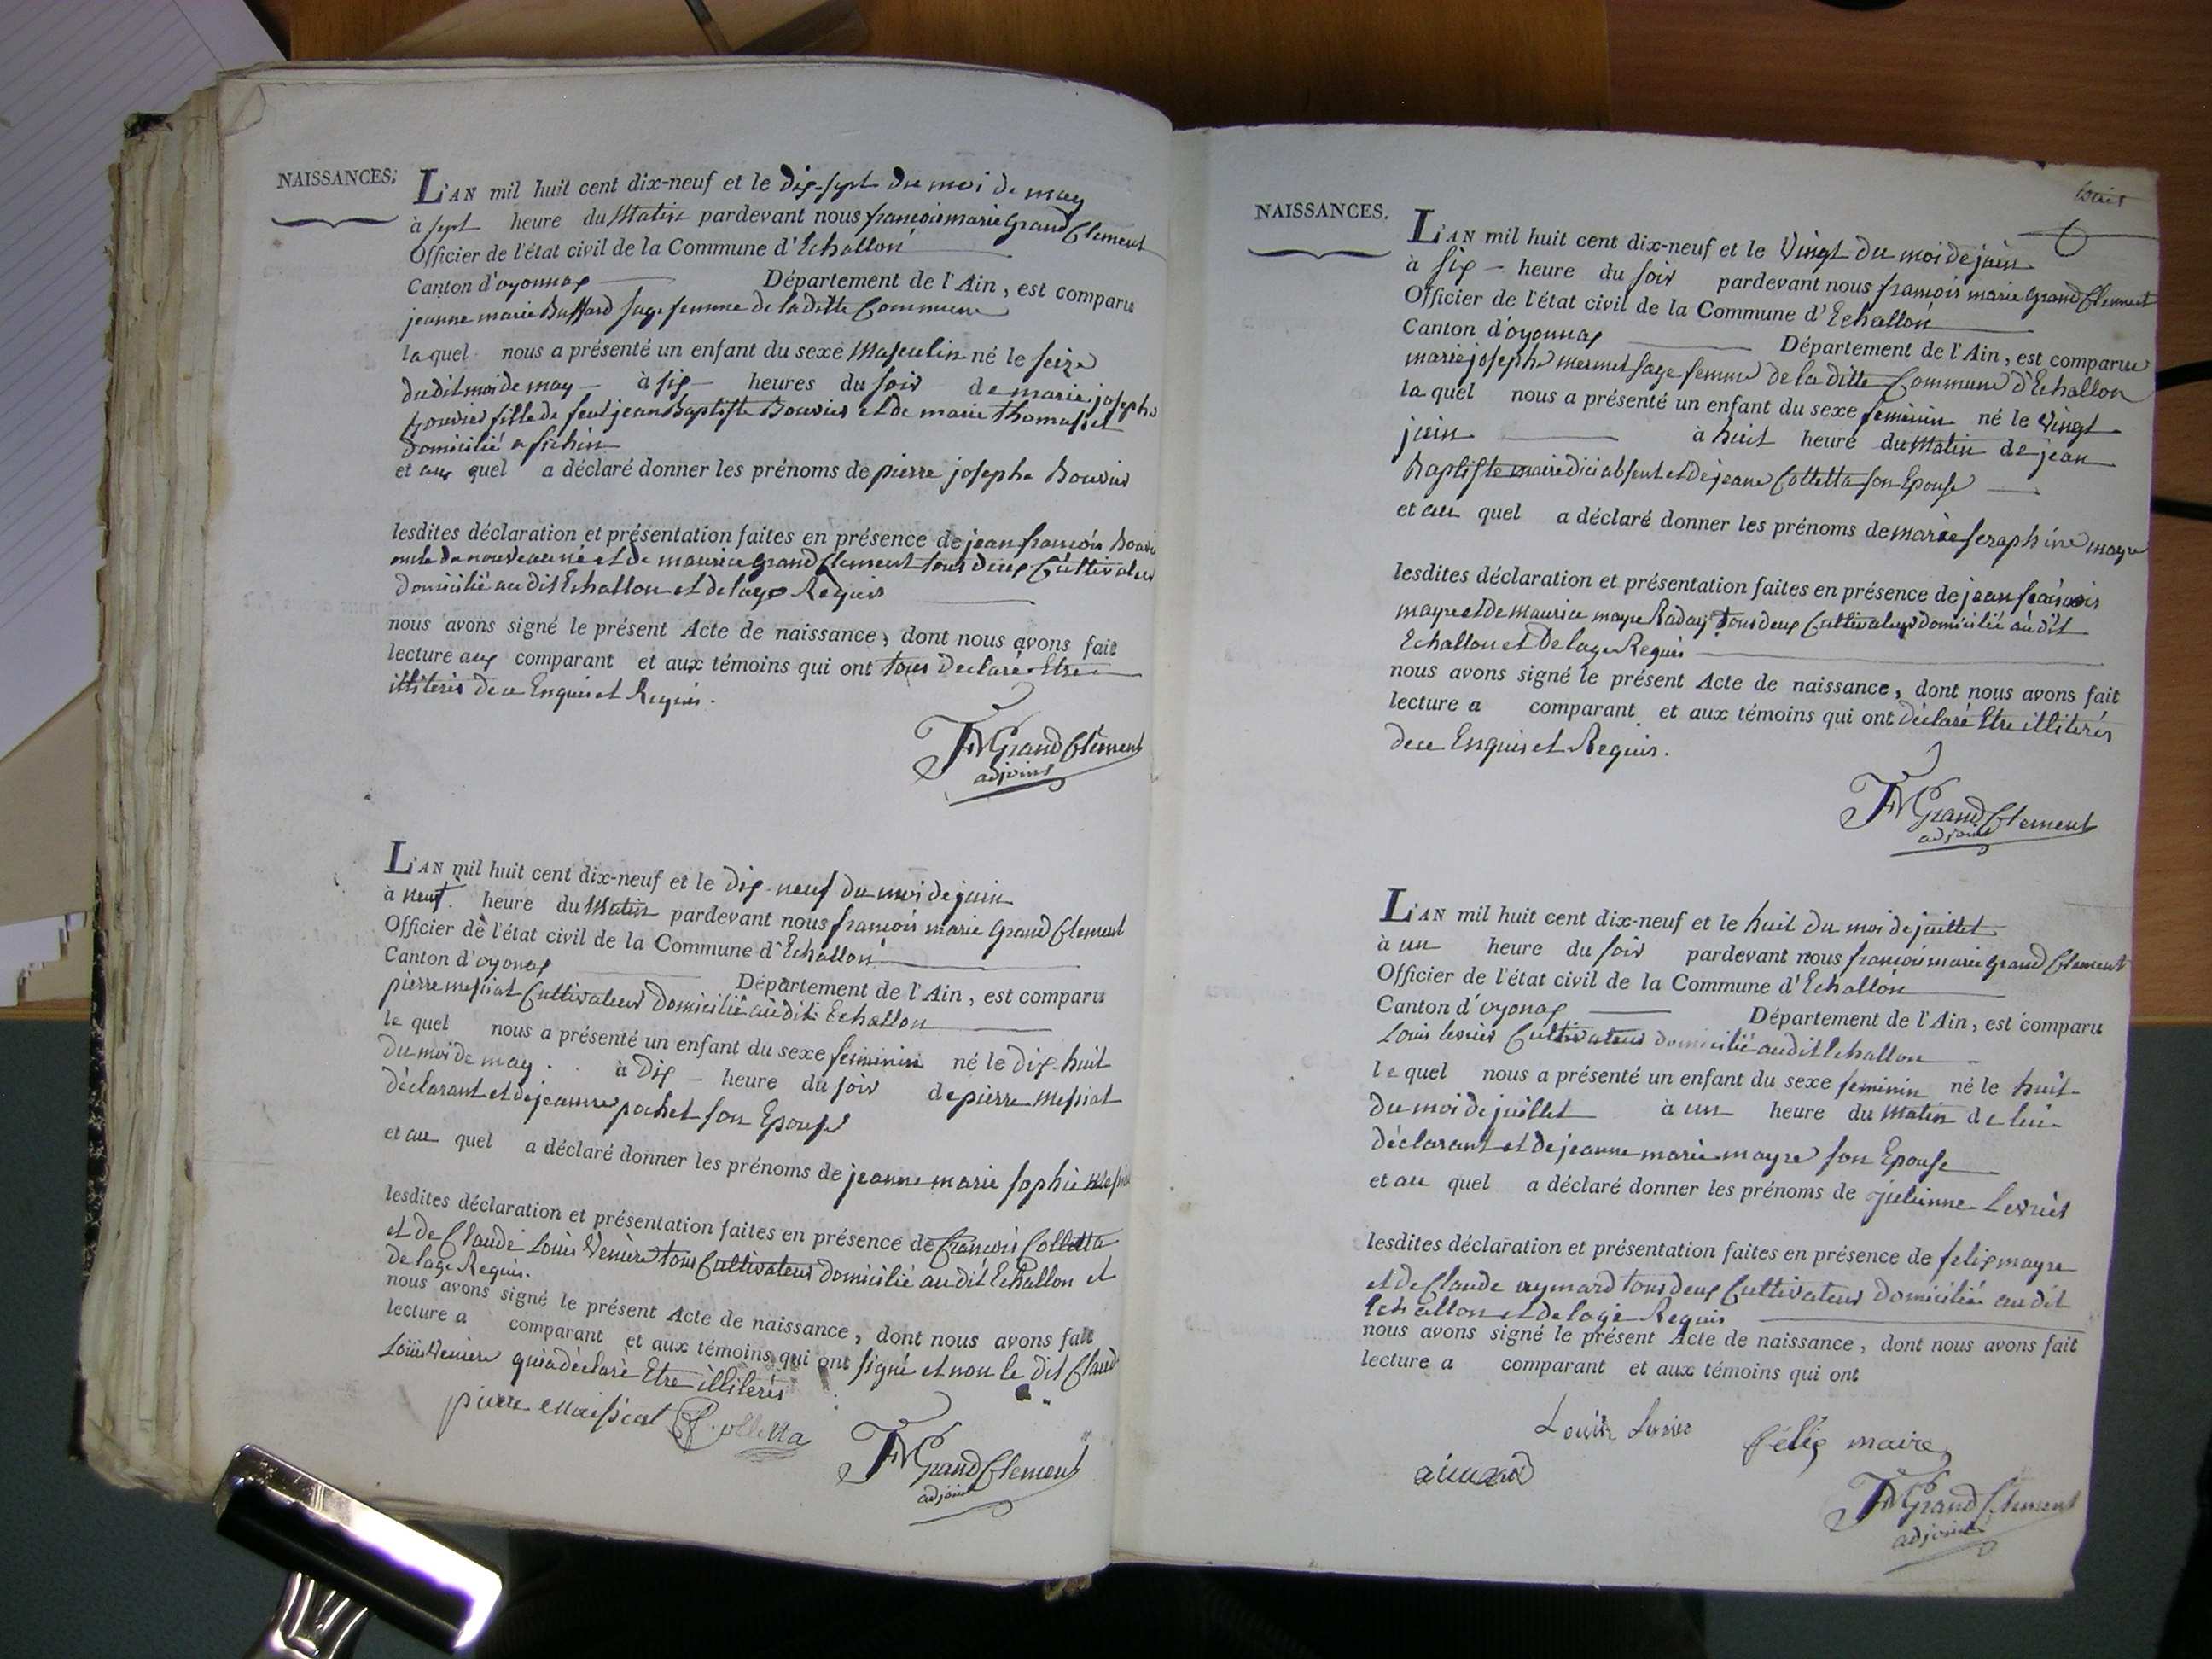 NAISSANCES.
L'AN mil huit cent dix-neuf et le dix-sept du moi de may
à sept heure du Matin pardevant nous francois marie Grand Clement
Officier de l'état civil de la Commune d'Echallon
Canton d'oyonnax Département de l'Ain, est comparu
jeanne marie Buffard sage femme de la ditte Commune
la quel nous a présenté un enfant du sexe Masculin né le seize
du dit moi de may à six heures du soir de marie josephe
Bouvier fille de feut jean Baptiste Bouvier et de marie thomasset
domicilié a
et aux quel a déclaré donner les prénoms de pierre josephe Bouvier
lesdites déclaration et présentation faites en présence de jean francois Bouvie
oncle du nouveau né et de maurice Grand Clement tous deux Cultivateur
domicilié au dit Echallon et de lage Requis
nous avons signé le présent Acte de naissance, dont nous avons fait
lecture aux comparant et aux témoins qui ont tous declaré Etre
illiterés de ce Enquis et Requis.
FM Grand Clement
adjoint
L'AN mil huit cent dix-neuf et le dix-neuf du moi de juin
à neuf heure du Matin pardevant nous francois marie Grand Clement
Officier de l'état civil de la Commune d'Echallon
Canton d'oyonax Département de l'Ain, est comparu
pierre messiat Cultivateur domicilié au dit Echallon
le quel nous a présenté un enfant du sexe feminin né le dix-huit
du moi de may. à dix heure du soir de pierre messiat
déclarant et de jeanne pochet son Epouse
et au quel a déclaré donner les prénoms de jeanne marie sophie Messia
lesdites déclaration et présentation faites en présence de francois Colletta
et de Claude Louis Veniere tous Cultivateur domicilié au dit Echallon et
de lage Requis.
nous avons signé le présent Acte de naissance, dont nous avons fait
lecture a comparant et aux témoins qui ont signé et non le dit Claud
Louis Veniere qui a déclaré Etre illiterés
pierre Maissiat Colletta
FM Grand Clement
adjoint
huit
NAISSANCES.
L'AN mil huit cent dix-neuf et le Vingt du moi de juin
à six heure du soir pardevant nous francois marie Grand Clement
Officier de l'état civil de la Commune d'Echallon
Canton d'oyonnax Département de l'Ain, est comparue
marie josephe mermet sage femme de la ditte Commune d'Echallon
la quel nous a présenté un enfant du sexe feminin né le Vingt
juin à huit heure du Matin de jean
Baptiste maire dici absent et de jeane Colletta son Epouse
et au quel a déclaré donner les prénoms de marie seraphine mayre
lesdites déclaration et présentation faites en présence de jean francois
mayre et de maurice mayre Raday tous deux Cultivateur domicilié au dit
Echallon et de lage Requis
nous avons signé le présent Acte de naissance, dont nous avons fait
lecture a comparant et aux témoins qui ont déclaré Etre illiterés
de ce Enquis et Requis.
FM Grand Clement
adjoint
L'AN mil huit cent dix-neuf et le huit du moi de juillet
à un heure du soir pardevant nous francois marie Grand Clement
Officier de l'état civil de la Commune d'Echallon
Canton d'oyonax Département de l'Ain, est comparu
Louis levrier Cultivateur domicilié au dit Echallon
le quel nous a présenté un enfant du sexe feminin né le huit
du moi de juillet à un heure du Matin de lui
déclarant et de jeanne marie mayre son Epouse
et au quel a déclaré donner les prénoms de julienne Levrier
lesdites déclaration et présentation faites en présence de felix mayre
et de Claude aymard tous deux Cultivateur domicilié au dit
Echallon et de lage Requis
nous avons signé le présent Acte de naissance, dont nous avons fait
lecture a comparant et aux témoins qui ont
Louis Levrier félix maire
aimard
FM Grand Clement
adjoint